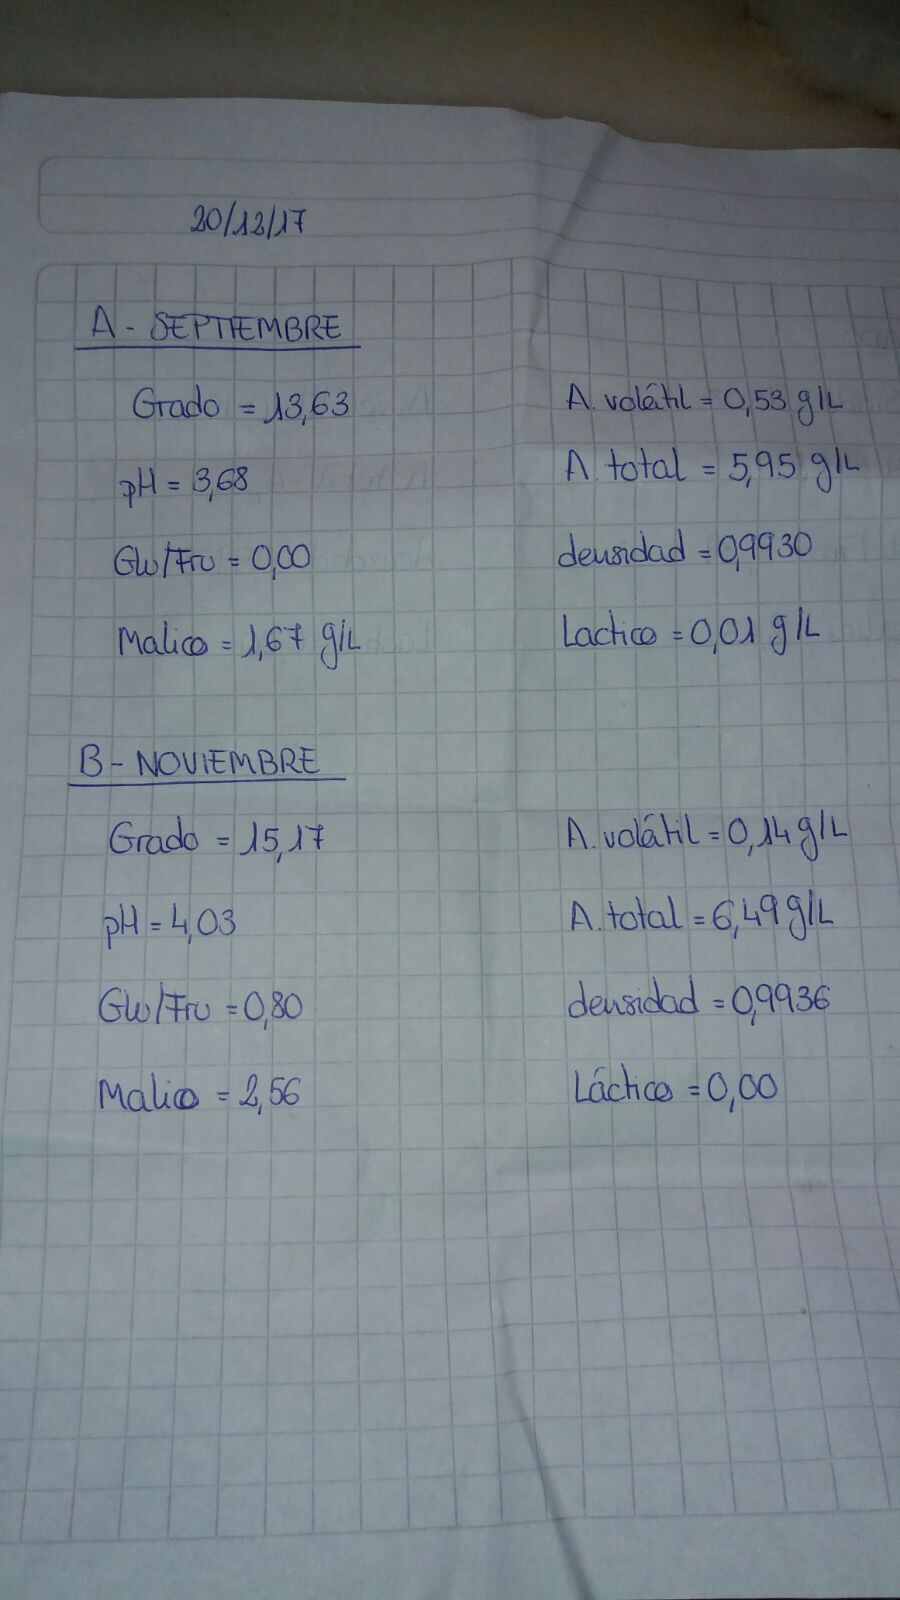 20/12/17
A - SEPTIEMBRE
Grado = 13,63 A. volátil = 0,53 g/L
pH = 3,68 A. total = 5,95 g/L
Glu/Fru = 0,00 densidad = 0,9930
Malico = 1,67 g/L Lactico = 0,01 g/L
B - NOVIEMBRE
Grado = 15,17 A. volátil = 0,14 g/L
pH = 4,03 A. total = 6,49 g/L
Glu/Fru = 0,80 densidad = 0,9936
Malico = 2,56 Láctico = 0,00